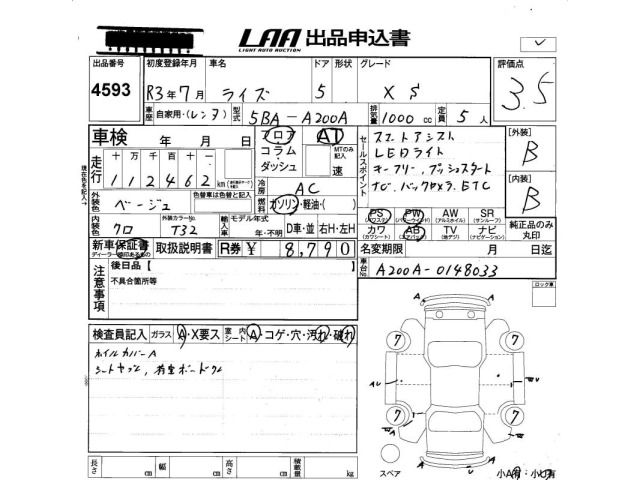 LAA 出品申込書
LIGHT AUTO AUCTION
出品番号 初度登録年月 車名 ドア 形状 グレード 評価点
4593 R3年7月 ライズ 5 X S 3.5
車歴 自家用・(レンタ) 型式 5BA-A200A 排気量 1000 cc 定員 5 人
車検 年 月 日 フロア AT
コラム・ダッシュ MTのみ記入 速
セールスポイント スマートアシスト
LEDライト
キーフリー、プッシュスタート
ナビ、バックカメラ、ETC
[外装] B
[内装] B
走行 十万千百十一
112462 km
冷房 AC
外装色 ベージュ 色替車は色替と記入
燃料 ガソリン・軽油・( )
内装色 クロ 外装カラーNo. T32
輸入車 モデル年式 年・不明 D車・並 右H・左H
PS PW AW SR
(パワステ) (パワーウインド) (アルミホイル) (サンルーフ)
カワ AB TV ナビ
(カワシート) (エアバック) (地デジ) (ナビゲーション)
純正品のみ丸印
新車保証書 取扱説明書 R券 ¥ 8,790
名変期限 月 日迄
車台No. A200A-0148033
注意事項 後日品【
不具合箇所等
ロック車
検査員記入 ガラス A・X要ス 室内シート A・コゲ・穴・汚れ・破れ
ホイルカバーA
A A
7 7
AU
7 7
A
長さ cm 幅 cm 高さ cm 積載量 kg
スペア